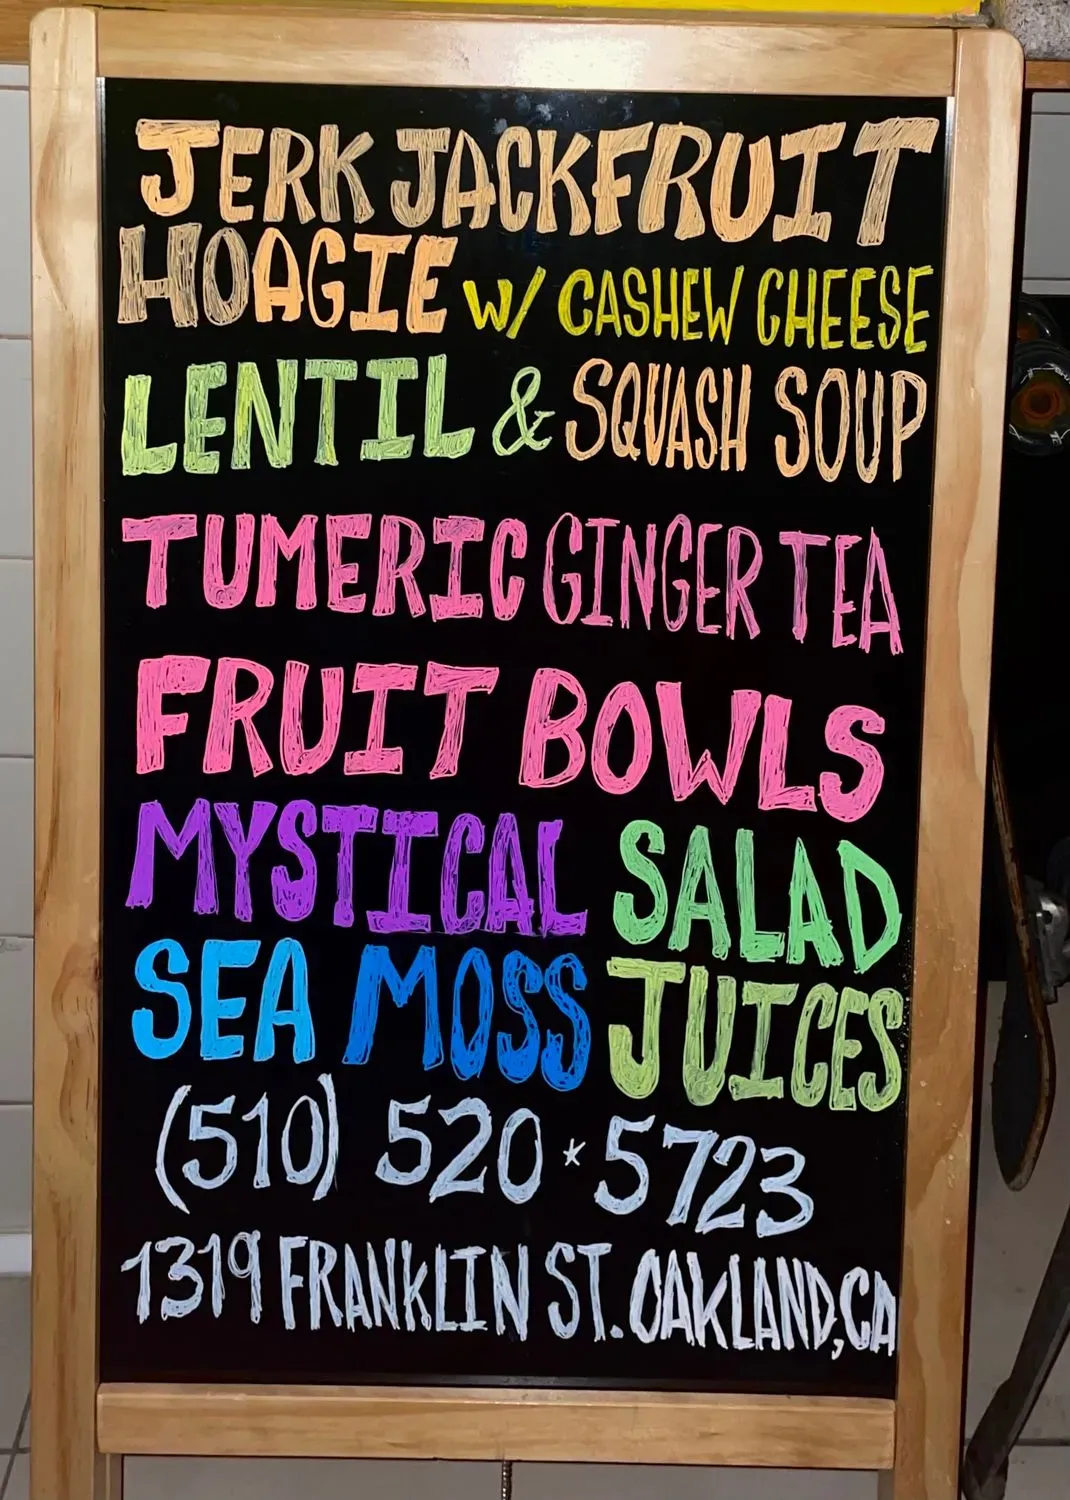 JERK JACKFRUIT
HOAGIE W/ CASHEW CHEESE
LENTIL & SQUASH SOUP
TUMERIC GINGER TEA
FRUIT BOWLS
MYSTICAL SALAD
SEA MOSS JUICES
(510) 520*5723
1319 FRANKLIN ST. OAKLAND, CA